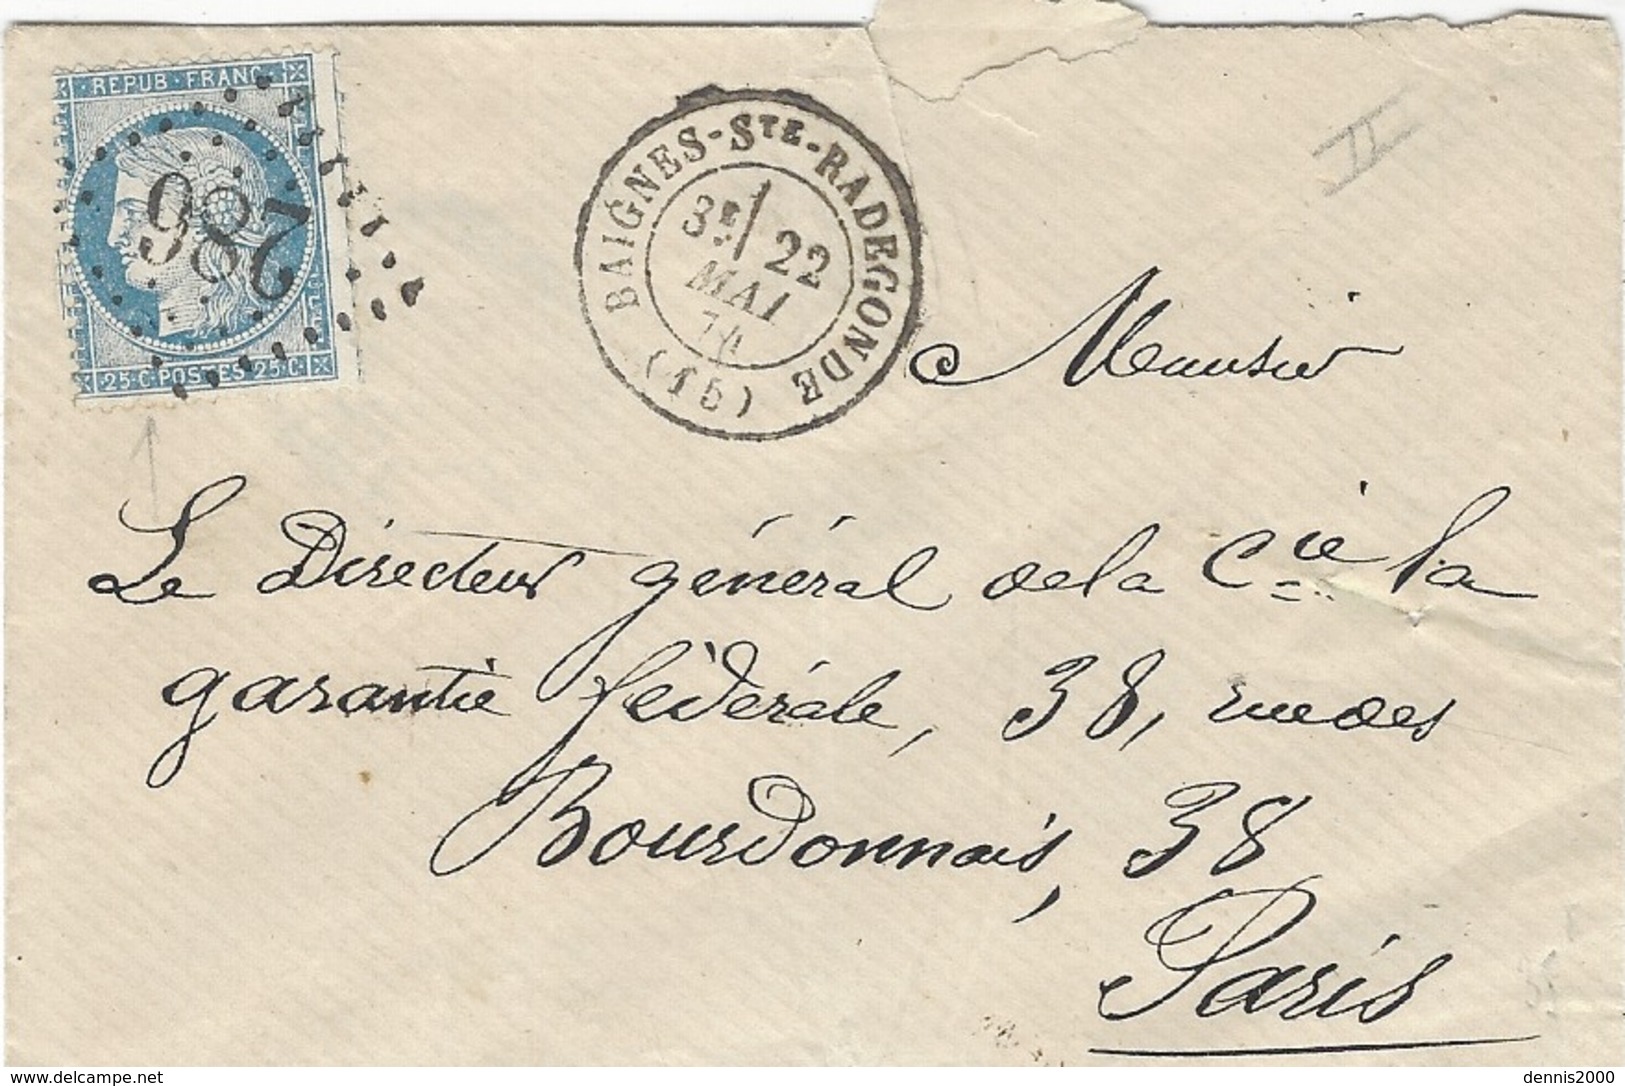 REPUB · FRANC
286
25 · C · POSTES 25 · C ·
BAIGNES-STE-RADEGONDE
3E/ 22
MAI
74
(15)
II
Monsieur
Le Directeur général de la Cie la
garantie fédérale, 38, rue des
Bourdonnais, 38
Paris
delcampe.net
dennis2000